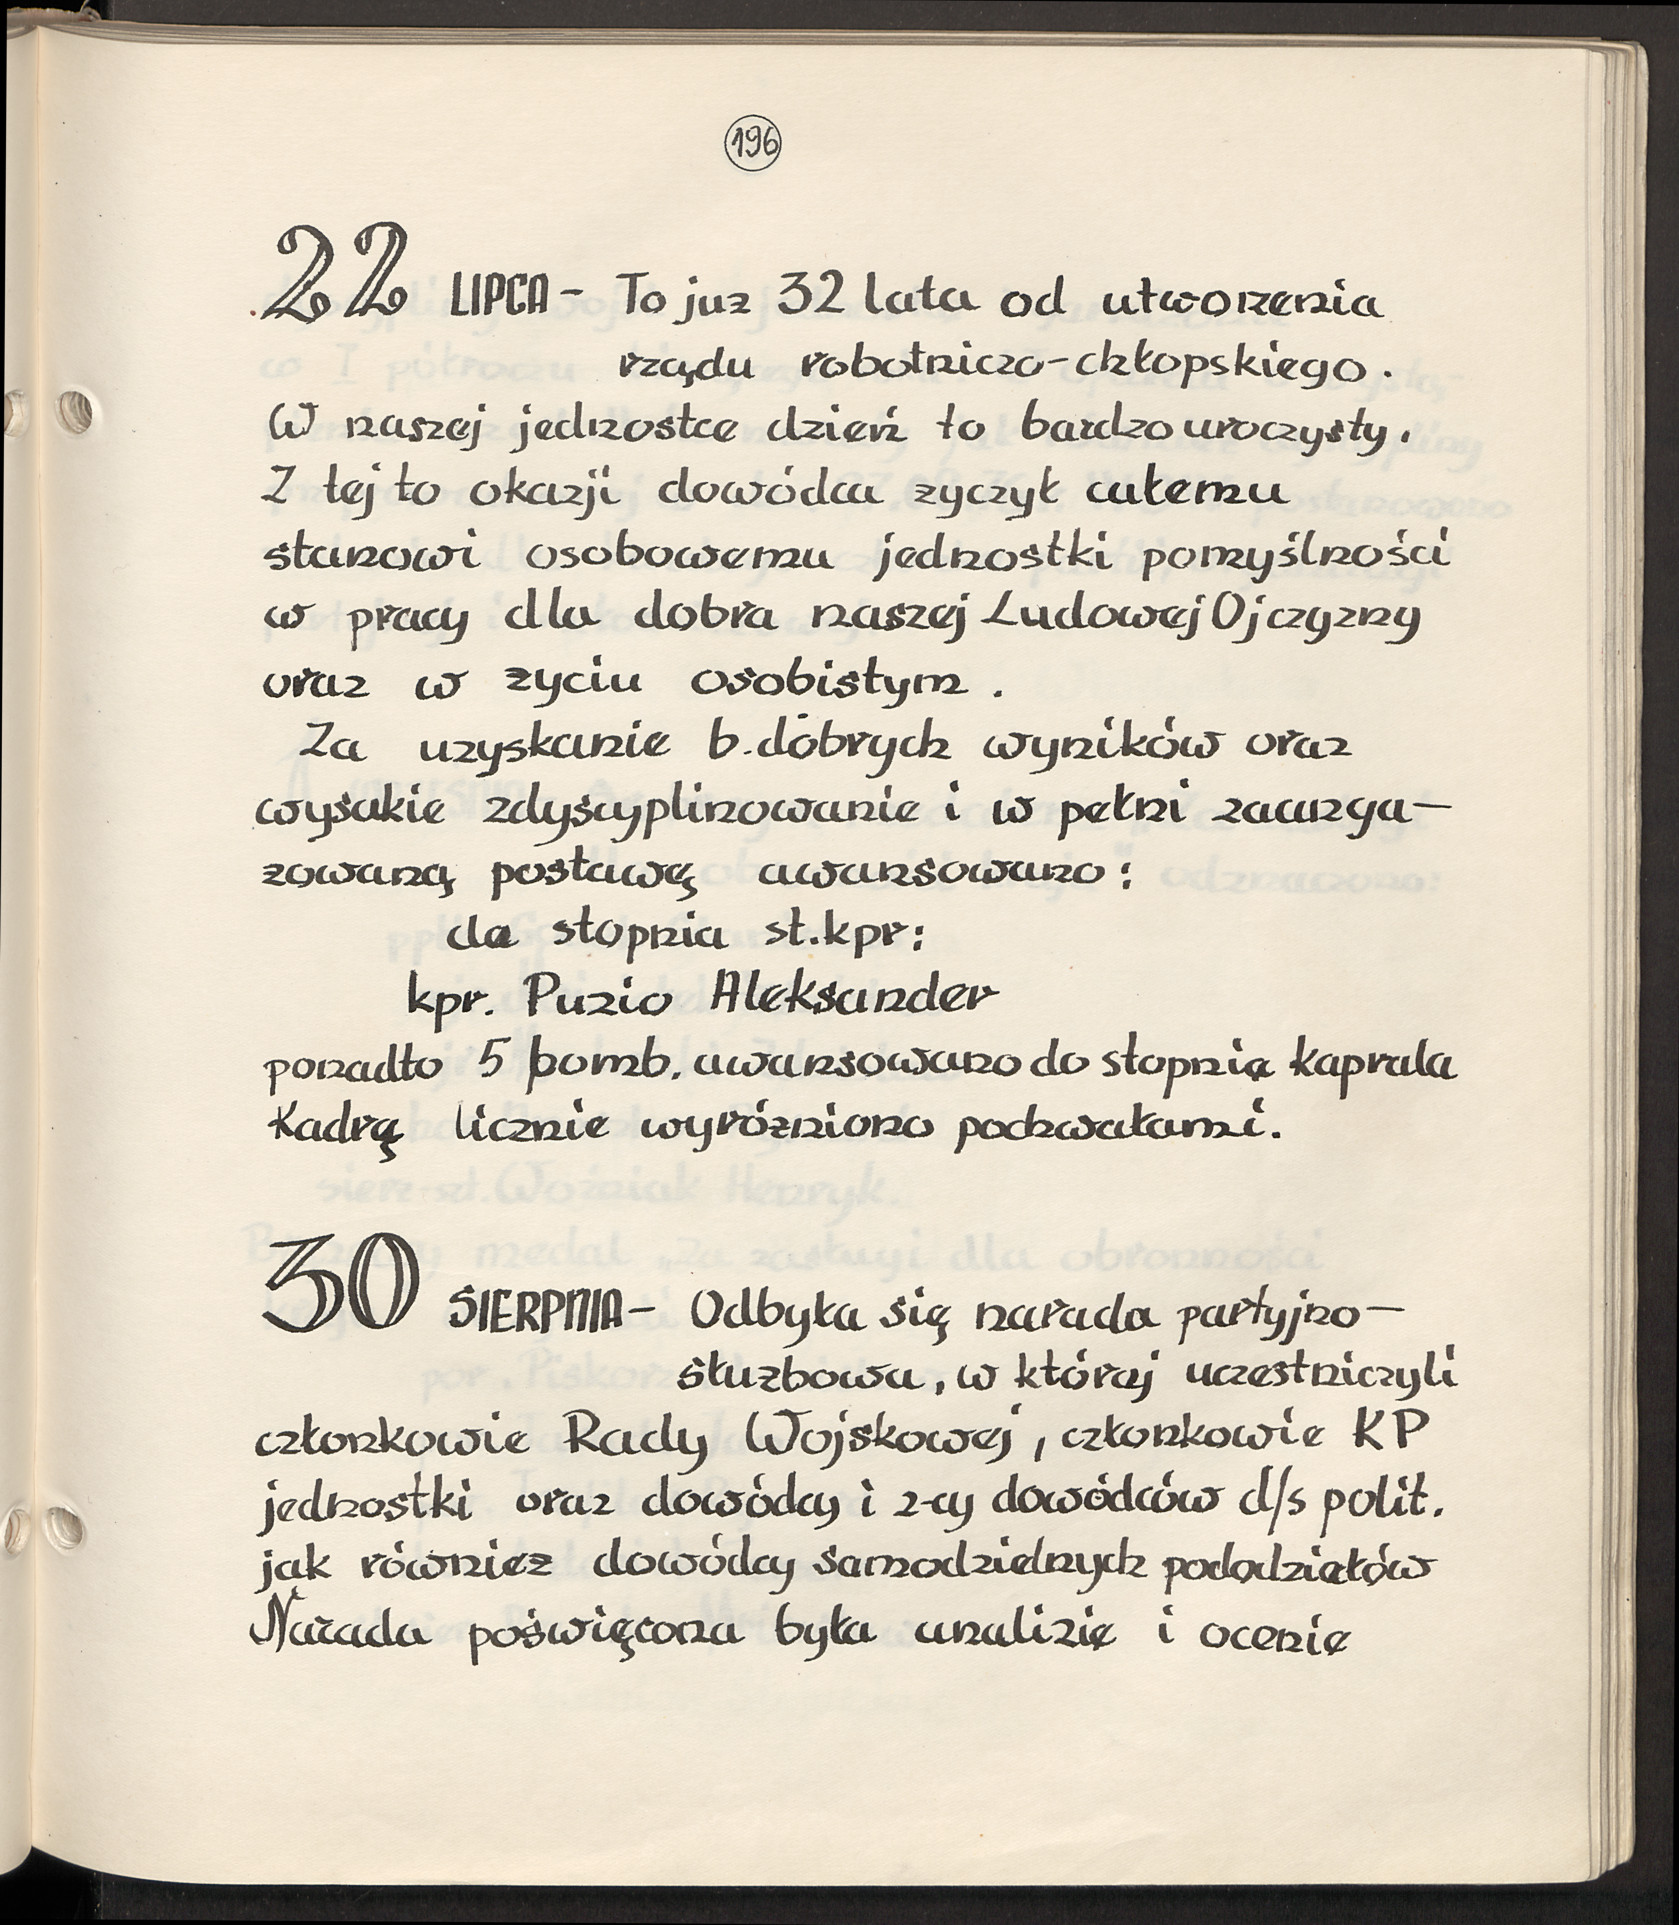 196
22 LIPCA - To juz 32 lata od utworzenia
rządu robotniczo-chłopskiego.
W naszej jednostce dzień to bardzo uroczysty.
Z tej to okazji dowódca zyczył całemu
stanowi osobowemu jednostki pomyślności
w pracy dla dobra naszej Ludowej Ojczyzny
oraz w zyciu osobistym.
Za uzyskanie b. dobrych wyników oraz
wysokie zdyscyplinowanie i w pełni zaanga-
zowaną postawę awansowano:
do stopnia st. kpr:
kpr. Puzio Aleksander
ponadto 5 bomb. awansowano do stopnia kaprala
Kadrę licznie wyrózniono pochwałami.
30 SIERPNIA - Odbyła się narada partyjno-
słuzbowa, w której uczestniczyli
członkowie Rady Wojskowej, członkowie KP
jednostki oraz dowódcy i z-cy dowódców d/s polit.
jak równiez dowódcy samodzielnych pododziałów
Narada poświęcona była analizie i ocenie